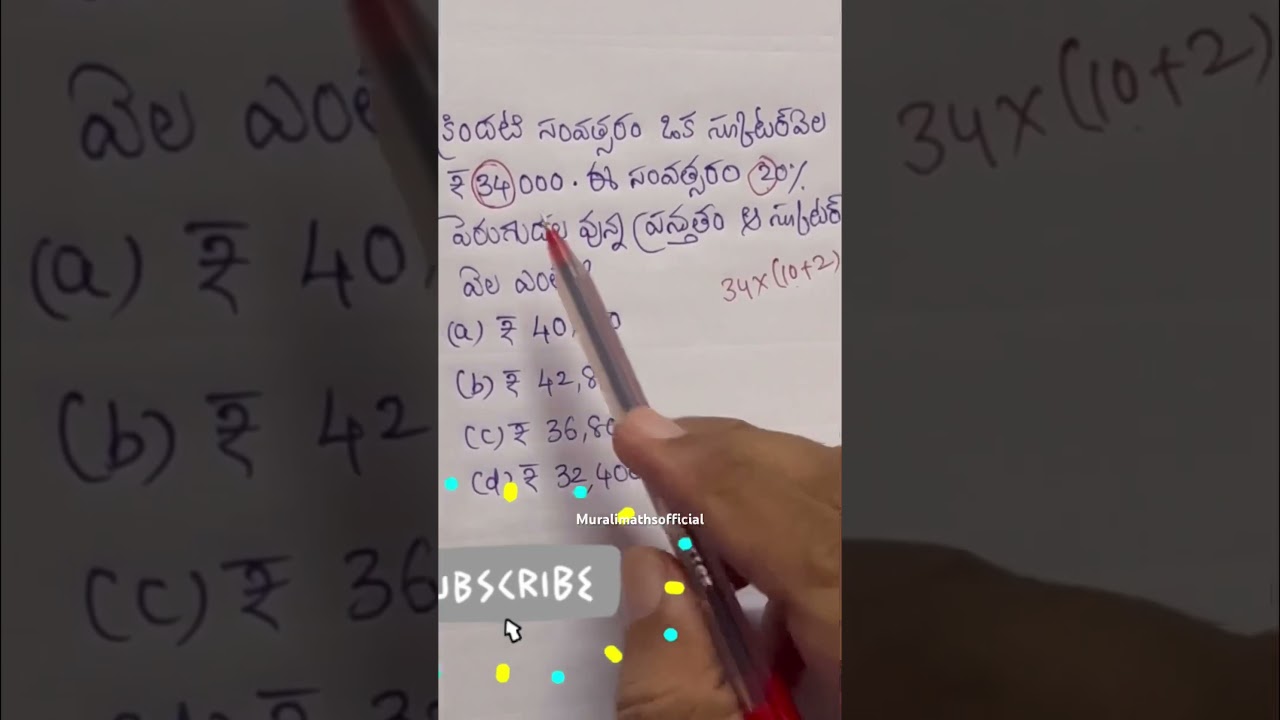 క్రిందటి సంవత్సరం ఒక స్కూటర్ వెల
₹ 34000. ఈ సంవత్సరం 20%
పెరుగుదల వున్న ప్రస్తుతం ఆ స్కూటర్
వెల
34x(10+2)
(a) ₹ 40,
(b) ₹ 42,8
(c) ₹ 36,80
(d) ₹ 32,400
Muralimathsofficial
UBSCRIBE
వెల
(a) ₹ 40,
(b) ₹ 42
(c) ₹ 36
34x(10+2)